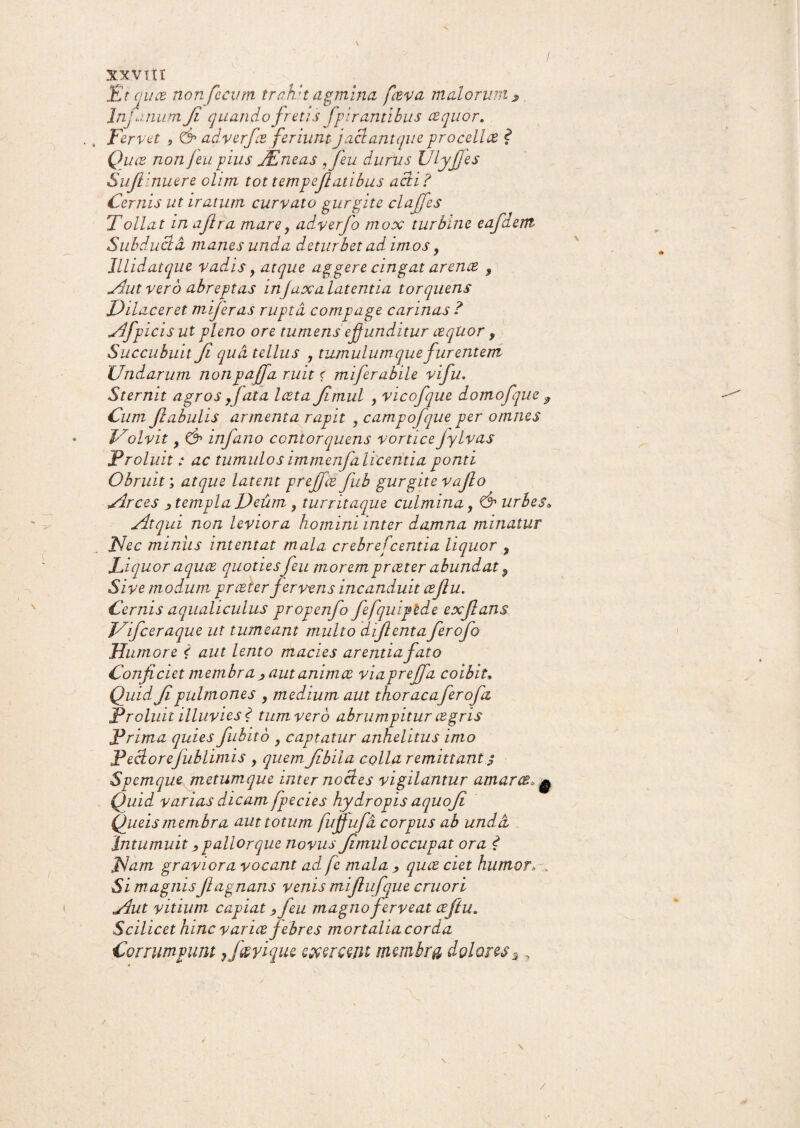 XXVIII
Et quæ non secum trahit agmina sæva malorum,
Insanum si quando fretis spirantibus æquor.
Fervet, & adversæ feriunt jactantque procellæ?
Quæ non seu pius Æneas, seu durus Ulysses
Sustinuere olim tot tempestatibus acti?
Cernis ut iratum curvato gurgite classes
Tollat in astra mare, adverso mox turbine easdem
Subductâ manes unda deturbet ad imos,
Illidatque vadis, atque aggere cingat arenæ,
Aut verò abreptas in saxa latentia torquens
Dilaceret miseras ruptâ compage carinas?
Aspicis ut pleno ore tumens effunditur æquor,
Succubuit si quâ tellus, tumulumque furentem
Undarum non passa ruit? miserabile visu.
Sternit agros, sata læta simul, vicosque domosque,
Cum stabulis armenta rapit, camposque per omnes
Volvit, & insano contorquens vortice sylvas
Proluit: ac tumulos immensa licentia ponti
Obruit; atque latent pressæ sub gurgite vasto
Arces, templa Deûm, turritaque culmina, & urbes.
Atqui non leviora homini inter damna minatur
Nec minùs intentat mala crebrescentia liquor,
Liquor aquæ quoties seu morem præter abundat,
Sive modum præter fervens incanduit æstu.
Cernis aqualiculus propenso sesquipede exstans
Visceraque ut tumeant multo distenta seroso
Humore? aut lento macies arentia fato
Conficiet membra, aut animæ via pressa coibit.
Quid si pulmones, medium aut thoraca serosa
Proluit illuvies? tum verò abrumpitur ægris
Prima quies subitò, captatur anhelitus imo
Pectore sublimis, quem sibila colla remittant;
Spemque metumque inter noctes vigilantur amaræ.
Quid varias dicam species hydropis aquosi
Queis membra aut totum suffusâ corpus ab undâ
Intumuit, pallorque novus simul occupat ora?
Nam graviora vocant ad se mala, quæ ciet humor.
Si magnis stagnans venis mistusque cruori
Aut vitium capiat, seu magno ferveat æstu.
Scilicet hinc variæ febres mortalia corda
Corrumpunt, sævique exercent membra dolores,